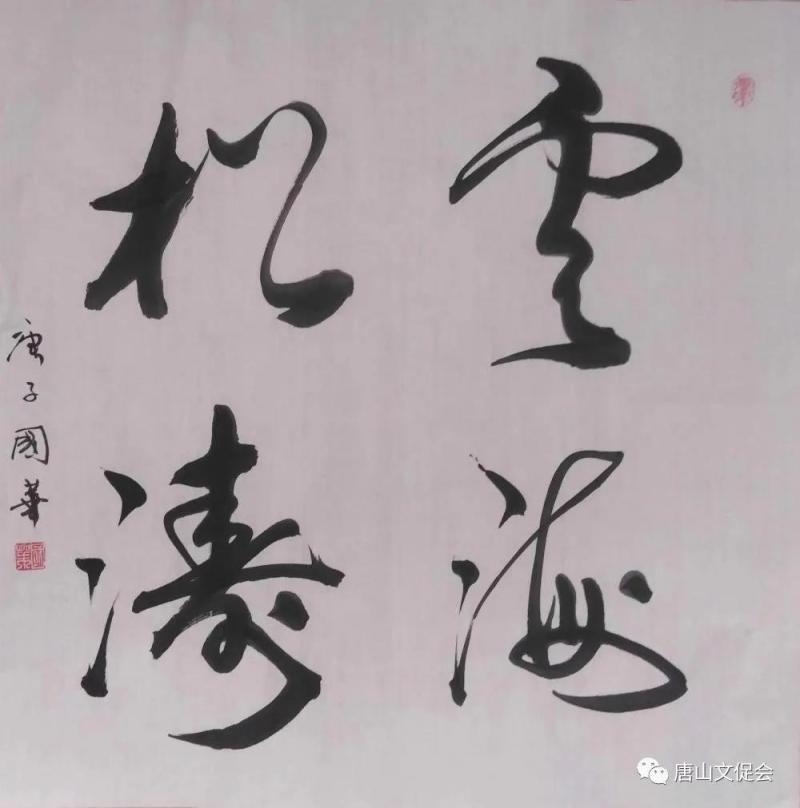 雲海
松濤
庚子國華
唐山文促会